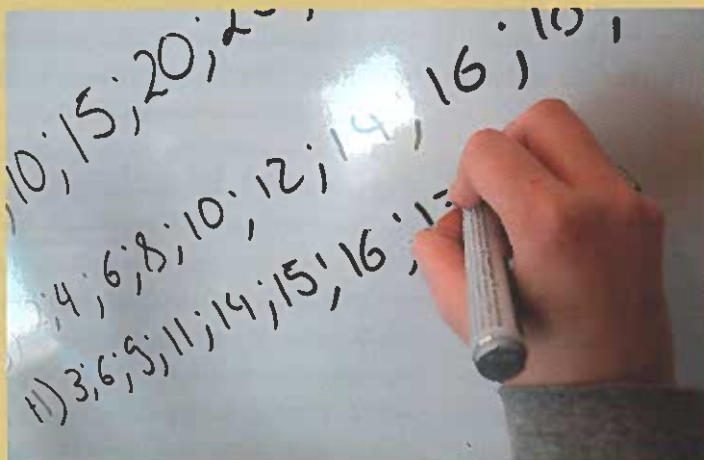 10;15;20;
4;6;8;10;12;14;16;
H) 3;6;9;11;14;15;16;